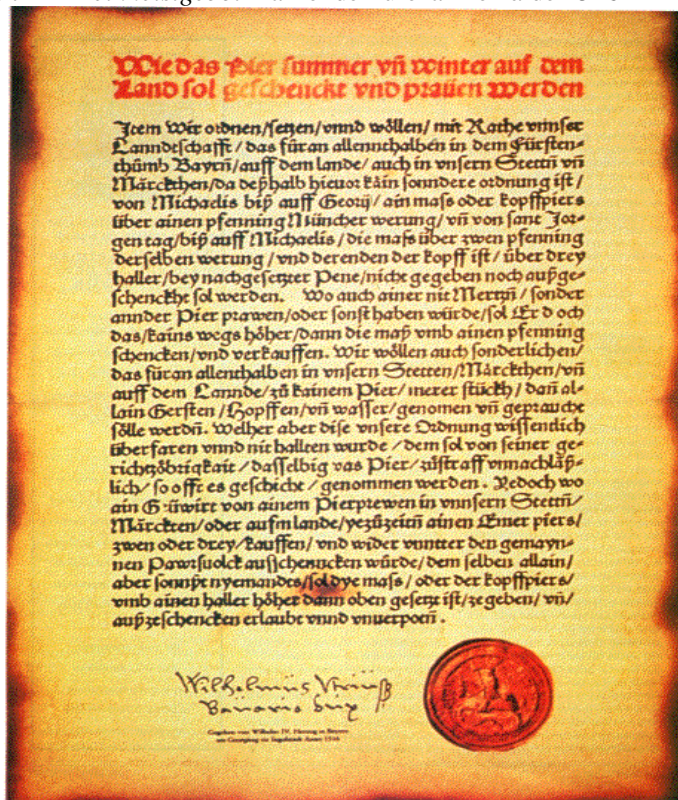 Wie das Pier summer vñ winter auf dem
Land sol geschenckt vnd praüen werden
Item Wir ordnen/setzen/vnnd wöllen/mit Rathe vnnser
Lanndeschafft/das füran allennthalben in dem Fürsten⸗
thůmb Bayrñ/auff dem lande/auch in vnsern Stettñ vñ
Märckthen/da deßhalb hieuor kain sonndere ordnung ist/
von Michaelis biß auff Georij/ain mass oder kopffpiers
über ainen pfenning Müncher werung/vñ von sant Jor⸗
gen tag/biß auff Michaelis/die mass über zwen pfenning
derselben werung/vnd derenden der kopff ist/über drey
haller/bey nachgesetzter Pene/nicht gegeben noch außge⸗
schenckht sol werden. Wo auch ainer nit Mertzñ/sonder
annder Pier prawen/oder sonst haben würde/sol Er d och
das/kains wegs höher/dann die maß vmb ainen pfenning
schencken/vnd verkauffen. Wir wöllen auch sonderlichen/
das füran allenthalben in vnsern Stetten/Märckthen/vñ
auff dem Lannde/zů kainem Pier/merer stückh/dañ al⸗
lain Gersten/Hopffen/vñ wasser/genomen vñ gepraucht
sölle werdñ. Welher aber dise vnsere Ordnung wissendlich
überfaren vnnd nit hallten wurde/dem sol von seiner ge⸗
richtzöbrigkait/dasselbig vas Pier/zůstraff vnnachläß⸗
lich/so offt es geschicht/genommen werden. Yedoch wo
ain Guwirt von ainem Pierprewen in vnnsern Stettñ/
Märckten/oder aufm lande/yezůzeitñ ainen Emer piers/
zwen oder drey/kauffen/vnd wider vnntter den gemayn⸗
nen Pawrsuolck ausschenncken würde/dem selben allain/
aber sonnßt nyemandts/sol dye mass/oder der kopffpiers/
vmb ainen haller höher dann oben gesetzt ist/zegeben/vñ/
außzeschencken erlaubt vnnd vnuerpotñ.
Gegeben von Wilhelm IV. Herzog in Bayern
am Georgitag zu Ingolstadt Anno 1516